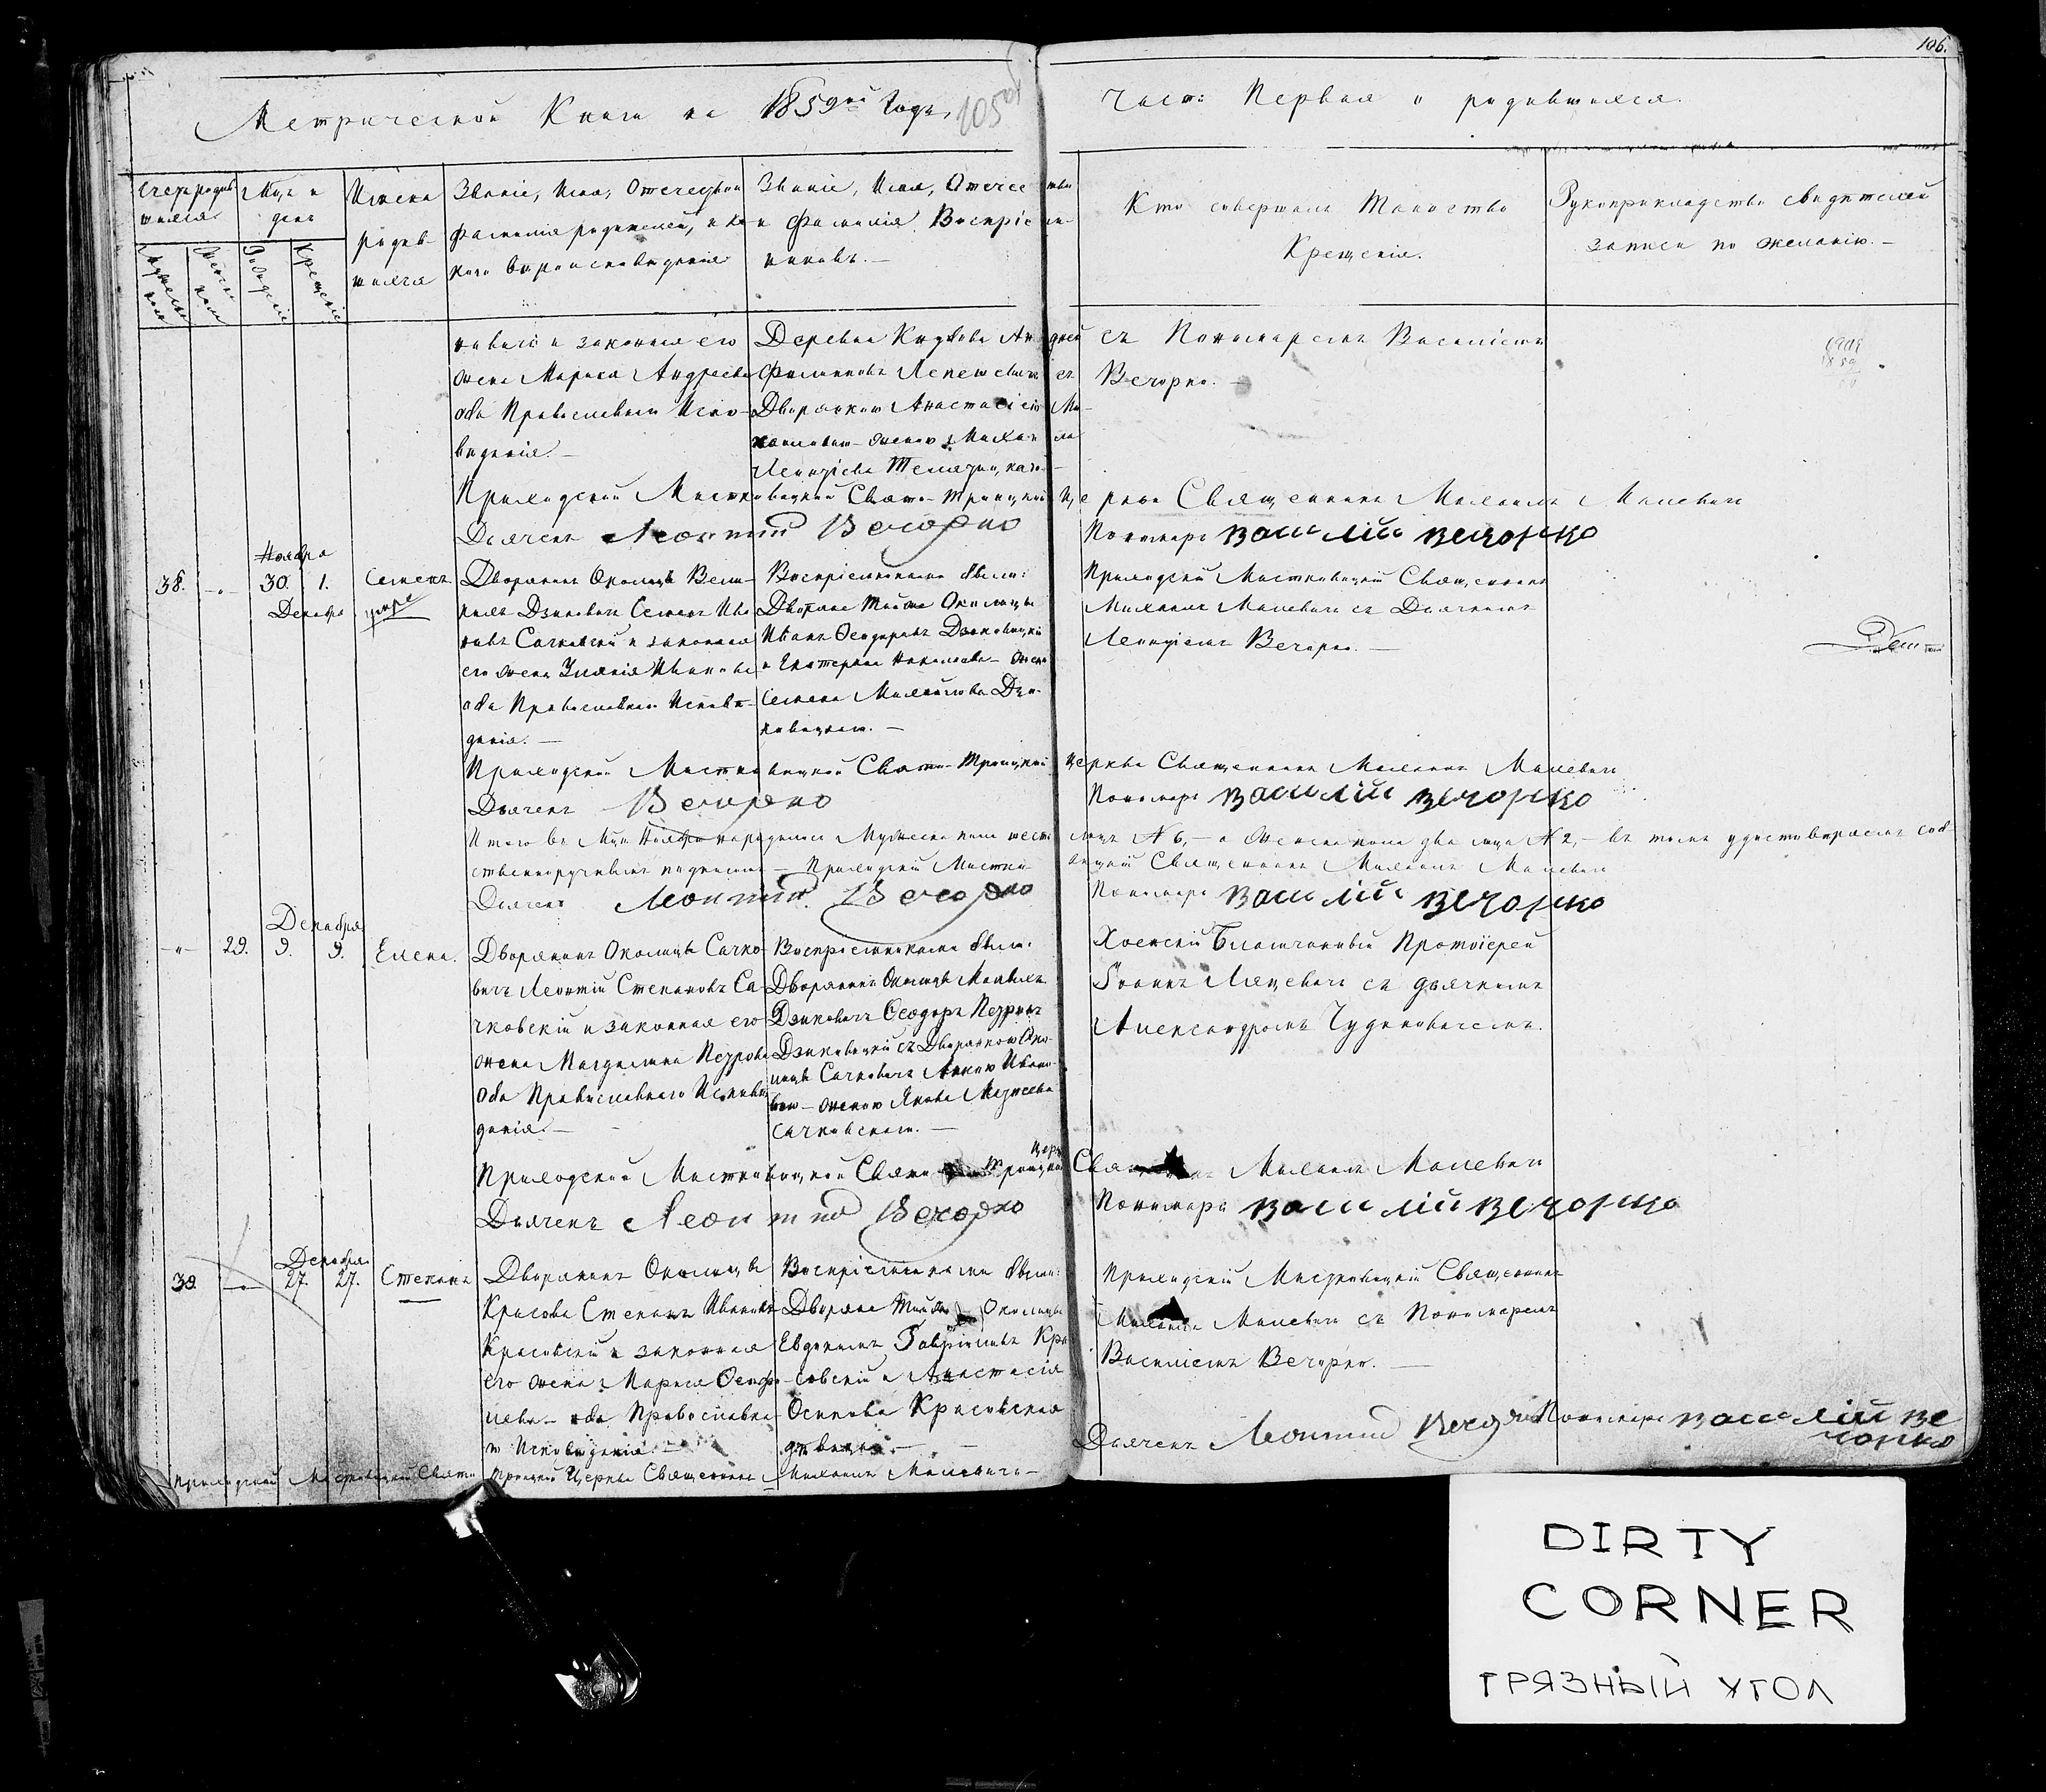 106.
Метрической Книги на 1859й Годъ, 105об
Часть Первая о родившихся.
Счетъ родив
шихся
Мцъ и
день
Имена
родив
шихся
Званіе, Имя, Отечество и
фамилія родителей, и ка
кого вѣроисповѣданія
Званіе, Имя, Отечество
и фамилія Воспріем
никовъ. —
Кто совершалъ Таинство
Крещенія.
Рукоприкладство свидѣтелей
записи по желанію. —
Мужеска
пола
Женска
пола
Рожденія
Крещенія
и законная его
жена Марія Андреева
оба Православнаго Испо-
вѣданія. —
Деревни
Дворянкою Анастасіею Ми-
хайловою женою Михаила
съ Пономаремъ Василіемъ
Вечорко. —
Приходской Мистковицкой Свято-Троицкой Церкви Священникъ Михаилъ Малевичъ
Дьячекъ Леонтій Вечорко
Пономарь Василій Вечорко
Ноября
38. -"- 30. 1. Семенъ
Декабря
Дворянинъ Околицы Вели-
кихъ Дзиковичъ Семенъ Ива
новъ Сачковскій и законная
его жена Уліянія Иванова
оба Православнаго Исповѣ-
данія. —
Воспріемниками были:
Дворяне той же Околицы
Иванъ Ѳеодоровъ Дзиковицкій
и Екатерина Николаева - жена
Семена Михайлова Дзи-
ковицкаго. —
Приходскій Мистковицкій Священникъ
Михаилъ Малевичъ съ Дьячкомъ
Леонтіемъ Вечорко. —
Приходской Мистковицкой Свято-Троицкой Церкви Священникъ Михаилъ Малевичъ
Дьячекъ Вечорко
Пономарь Василій Вечорко
Итого въ Мцѣ Ноябрѣ народилось Мужеска пола шесть лицъ № 6, - а Женска пола два лица № 2, - въ томъ удостовѣряемъ соб-
ственноручнымъ подписомъ — Приходской Мистковицкій Священникъ Михаилъ Малевичъ
Дьячекъ Леонтій Вечорко
Пономарь Василій Вечорко
Декабря
-"- 29. 9. 9. Елена.
Дворянинъ Околицы Сачко-
вичъ Леонтій Степановъ Са-
чковскій и законная его
жена Магдалина Петрова
оба Православнаго Исповѣ
данія. —
Воспріемниками были:
Дворянинъ Околицы Малыхъ
Дзиковичъ Ѳеодоръ Петровъ
Дзиковицкій съ Дворянкою Око-
лицы Сачковичъ Анною Ивано-
вою - женою Якова Моисеева
Сачковскаго. —
Хоенскій Благочинный Протоіерей
Іоаннъ Лящевичъ съ дьячкомъ
Александромъ Чудиновичемъ.
Приходской Мистковицкой Свято Троицкой Церк Священникъ Михаилъ Малевичъ
Дьячекъ Леонтій Вечорко
Пономарь Василій Вечорко
Декабря
39. -"- 27. 27. Степанъ
Дворянинъ Околицы
Красова Степанъ Ивановъ
Красовскій и законная
его жена Марія
оба Православна
го Исповѣданія. —
Воспріемниками были:
Дворяне той же Околицы
Евдокимъ Гавріиловъ Кра
совскій и Анастасія
Осипова Красовская
дѣвица. —
Приходскій Мистковицкій Священникъ
Михаилъ Малевичъ съ Пономаремъ
Василіемъ Вечорко. —
Приходской Мистковицкой Свято Троицкой Церкви Священникъ Михаилъ Малевичъ —
Дьячекъ Леонтій Вечорко Пономарь Василій Ве
чорко
DIRTY
CORNER
ГРЯЗНЫЙ УГОЛ